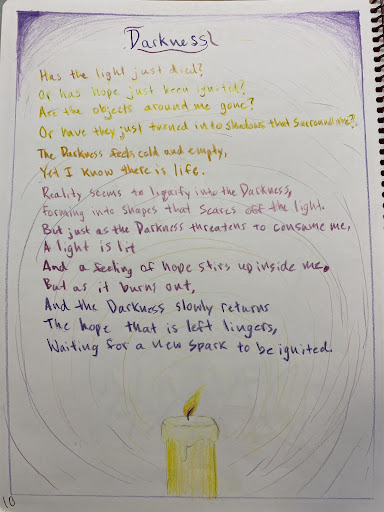 Darkness
Has the light just died?
Or has hope just been ignited?
Are the objects around me gone?
Or have they just turned into shadows that surround me?
The Darkness feels cold and empty,
Yet I know there is life.
Reality seems to liquify into the Darkness,
Forming into shapes that scares off the light.
But just as the Darkness threatens to consume me,
A light is lit
And a feeling of hope stirs up inside me.
But as it burns out,
And the Darkness slowly returns
The hope that is left lingers,
Waiting for a new spark to be ignited.
10